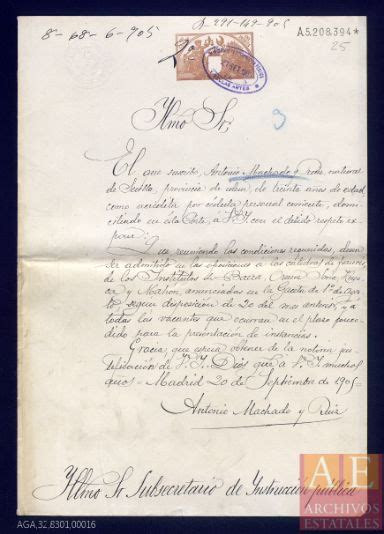 8-68-6-905
A.5.208.394*
25
Ilmo Sr,
9
El que suscribe, Antonio Machado y Ruiz, natural
de Sevilla, provincia de idem, de treinta años de edad
como acredita por cédula personal corriente, domi-
ciliado en esta Corte, a V.I. con el debido respeto ex-
pone:
Que reuniendo las condiciones requeridas, desea
ser admitido en las oposiciones a las cátedras de francés
de los Institutos de Baeza,
y Mahón, anunciadas en la Gaceta de 1º de Agos-
to, según disposición de 20 del mes anterior, y a
todas las vacantes que ocurran en el plazo conce-
dido para la presentación de instancias.
Gracia que espera obtener de la notoria jus-
tificación de V.I. Dios gue a V.I. muchos
años - Madrid 20 de Septiembre de 1905-
Antonio Machado y Ruiz
Ilmo Sr Subsecretario de Instrucción pública
AE
ARCHIVOS
ESTATALES
AGA,32,8301,00016